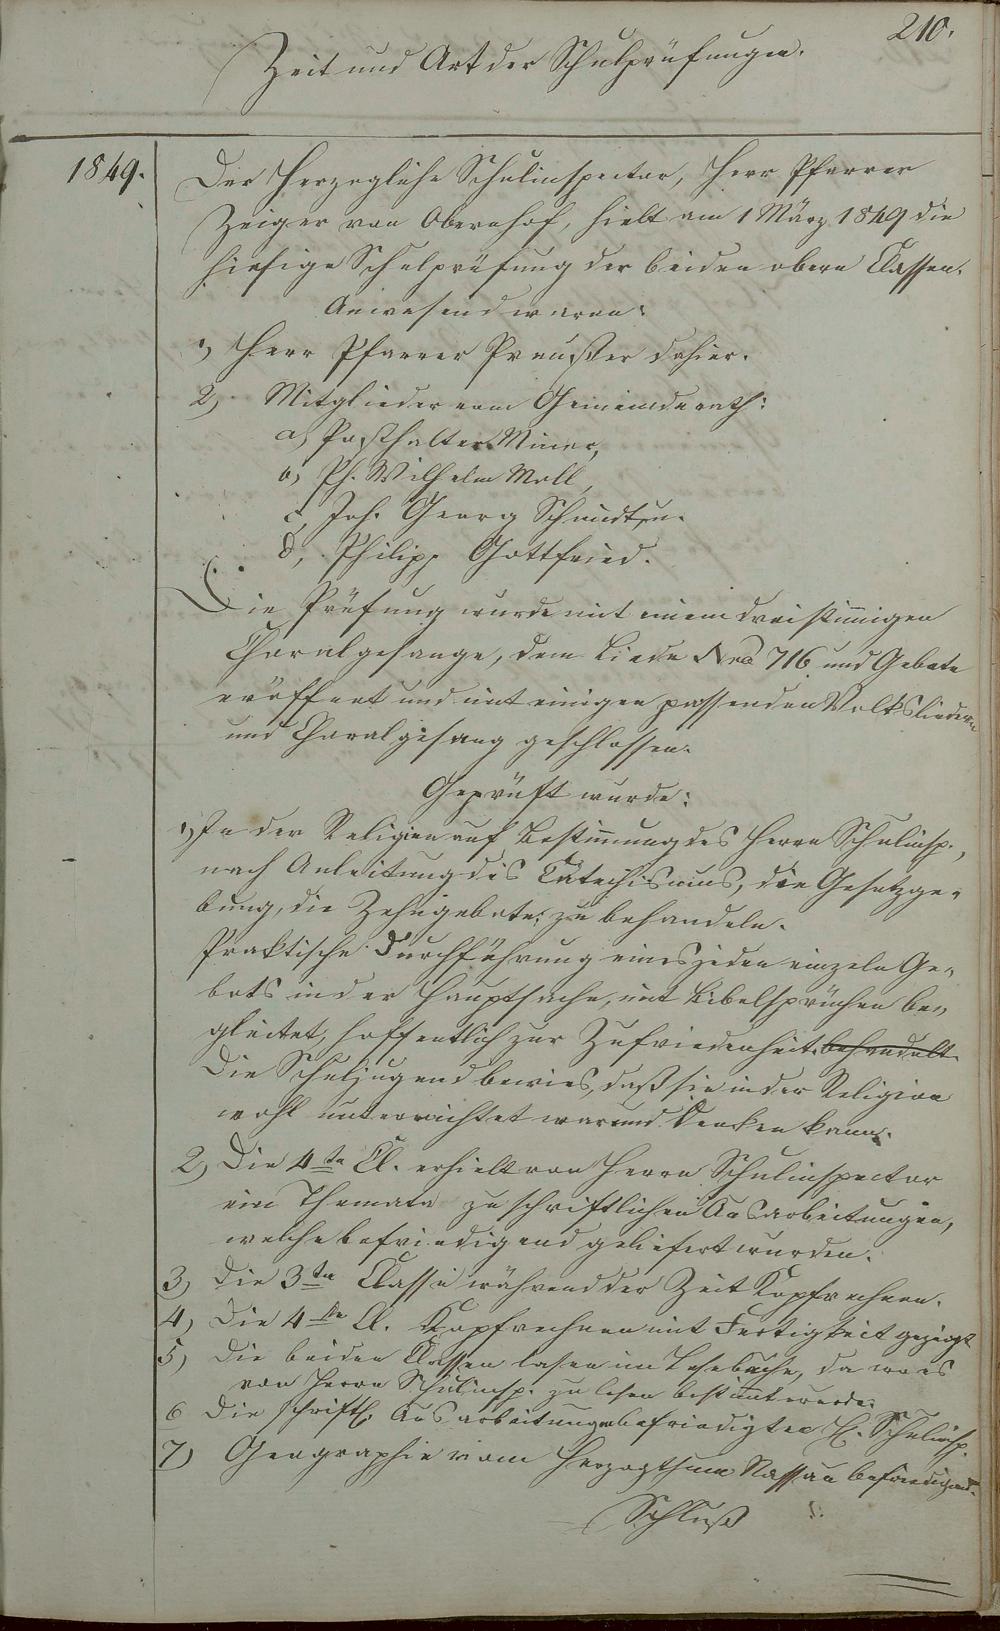 210.
Zeit und Art der Schulprüfungen.
1849.
Der Herzogliche Schulinspector, Herr Pfarrer
Zeiger von Obernhof, hielt am 1 März 1849 die
hiesige Schulprüfung der beiden obern Classen.
Anwesend waren:
1) Herr Pfarrer Preußer dahier.
2) Mitglieder vom Gemeinderath:
a) Posthalter Minor,
b) Ph. Wilhelm Moll,
c, Joh. Georg Schmidt sen.
d, Philipp Gottfried.
Die Prüfung wurde mit einem dreistim̄igen
Choralgesange, dem Liede Nro 716 und Gebete
eröffnet und mit einigen passenden Volksliedern
und Choralgesang geschlossen.
Geprüft wurde:
1) In der Religion auf Bestim̄ung des Herrn Schulinsp.,
nach Anleitung des Catechismus, die Gesetzge-
bung, die Zehngebote, zu behandeln.
Praktische Durchführung eines jeden einzeln Ge-
bots in der Hauptsache, mit Bibelsprüchen be-
gleitet, hoffentlich zur Zufriedenheit behandelt.
Die Schuljugend bewies, daß sie in der Religion
wohl unterrichtet war und denken kann.
2) Die 4te Cl. erhielt von Herrn Schulinspector
ein Themata zu schriftlichen Ausarbeitungen,
welche befriedigend geliefert wurden.
3) Die 3te Classe während der Zeit Kopfrechnen.
4) Die 4te Cl. Kopfrechnen mit Fertigkeit gezeigt
5) Die beiden Classen lasen im Lesebuche, da wo es
von Herrn Schulinsp. zu lesen bestim̄t wurde.
6 Die schriftl. Ausarbeitungen befriedigten H. Schulinsp.
7) Geographie vom Herzogthum Nassau befriedigend.
Schluß